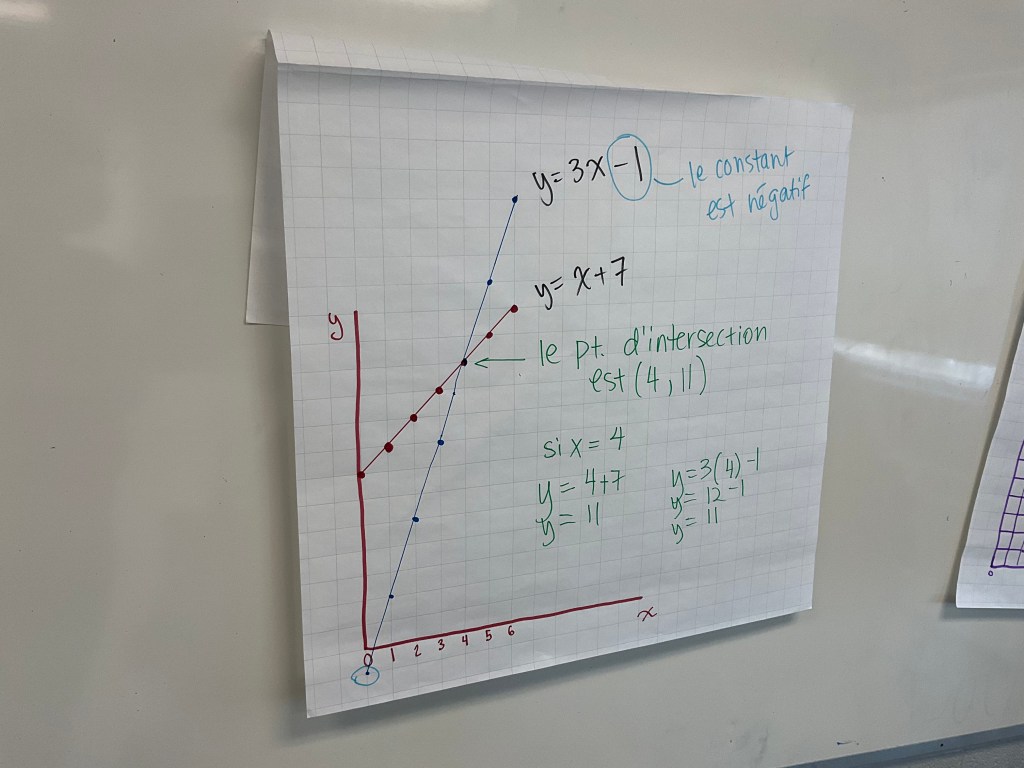 y = 3x - 1
le constant
est négatif
y = x + 7
y
le pt. d'intersection
est (4, 11)
si x = 4
y = 4+7
y = 11
y = 3(4) - 1
y = 12 - 1
y = 11
x
0 1 2 3 4 5 6
0